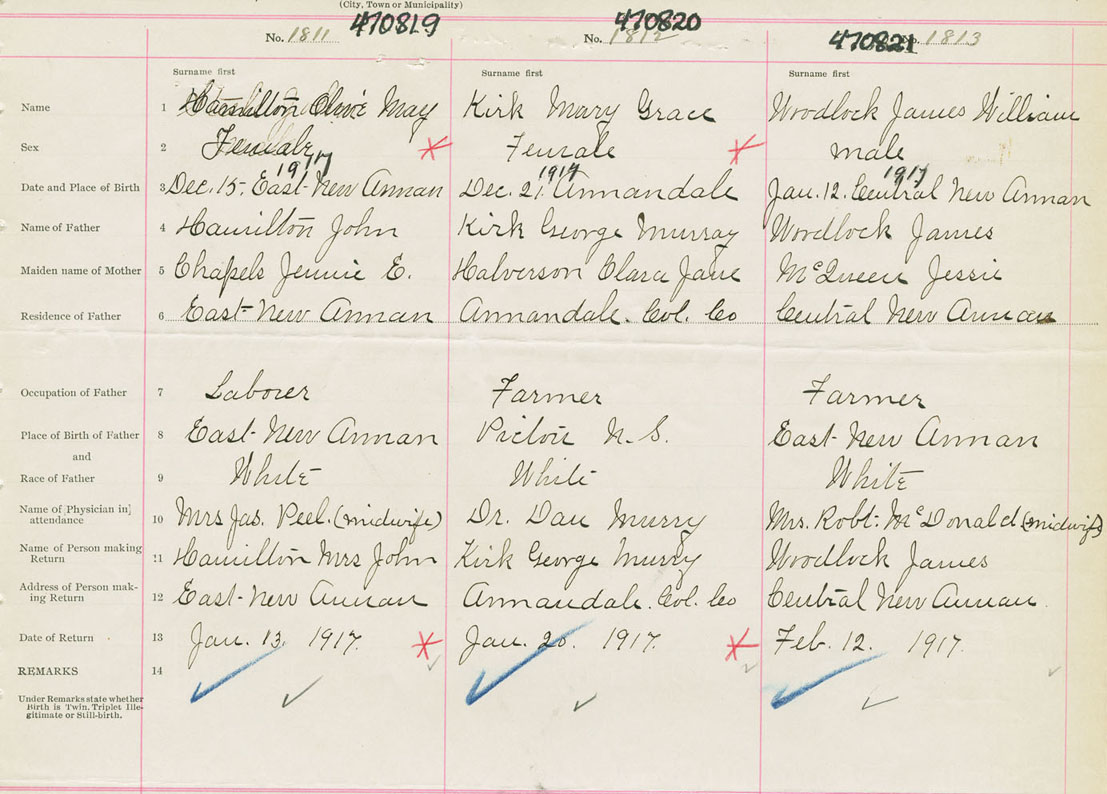 (City, Town or Municipality)
470819 470820 470821
No. 1811 No. 1812 No. 1813
Surname first Surname first Surname first
Name 1 Hamilton Olive May Kirk Mary Grace Woodlock James William
Sex 2 Female Female male
1917 1917 1917
Date and Place of Birth 3 Dec. 15- East New Annan Dec. 21. Annandale Jan. 12. Central New Annan
Name of Father 4 Hamilton John Kirk George Murray Woodlock James
Maiden name of Mother 5 Chapels Jennie E. Halverson Clara Jane McQueen Jessie
Residence of Father 6 East New Annan Annandale. Col. Co Central New Annan
Occupation of Father 7 Laborer Farmer Farmer
Place of Birth of Father 8 East New Annan Pictou N. S. East New Annan
and
Race of Father 9 White White White
Name of [Physician in] attendance 10 Mrs Jas. Peel. (midwife) Dr. Dan Murry Mrs. Robt. McDonald (midwife)
Name of Person making Return 11 Hamilton Mrs John Kirk George Murry Woodlock James
Address of Person making Return 12 East New Annan Annandale. Col. Co Central New Annan.
Date of Return 13 Jan. 13. 1917. Jan. 20. 1917. Feb. 12. 1917.
REMARKS 14
Under Remarks state whether
Birth is Twin, Triplet Ille-
gitimate or Still-birth.